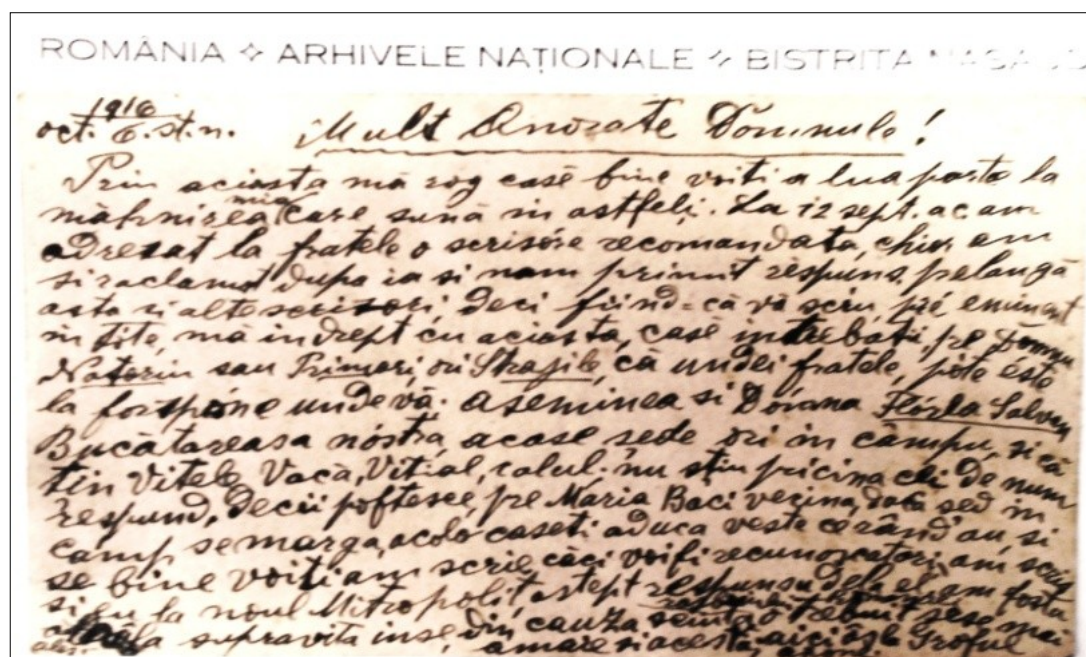 ROMÂNIA ✧ ARHIVELE NAȚIONALE ✧ BISTRITA NASA
1916
oct. 6. st. n. Mult Onorate Dómnule!
Prin aciasta mă rog casĕ bine voiti a lua parte la
măhnirea mia care sună in astfeli. La 12 sept. a c am
adresat la fratele o scrisóre recomandata, chiar am
si raclamat dupa ia si nam primit rĕspuns, pelangă
asta si alte scrisori, Deci fiind-că vă scriu, pré eminent
in tite, mă indrept cu aciasta, casĕ intrebati, pe Domnu
Notariu sau Primari, ori Strajile, că undei fratele, póte éste
la forspóne undevă. aseminea si Dóvana Flórla Salven
Bucătareasa nóstra, acase sede ori in câmpu, si că
tin Vitele, Vacă, Vitial, calul. nu stiu pricina cei de num
respund, Decii poftesce, pre Maria Baci vecina, dacă sed in
câmp se marga, acolo caseti aduca veste ce rând au, si
se bine voiti am scrie căci voi fi recunoscatori, am scris
si eu la noul Mitropolit, astept respunsu dela el, am fosta
supravita inse, din cauza trebuit sese mai
amare si acesta, aici Groful